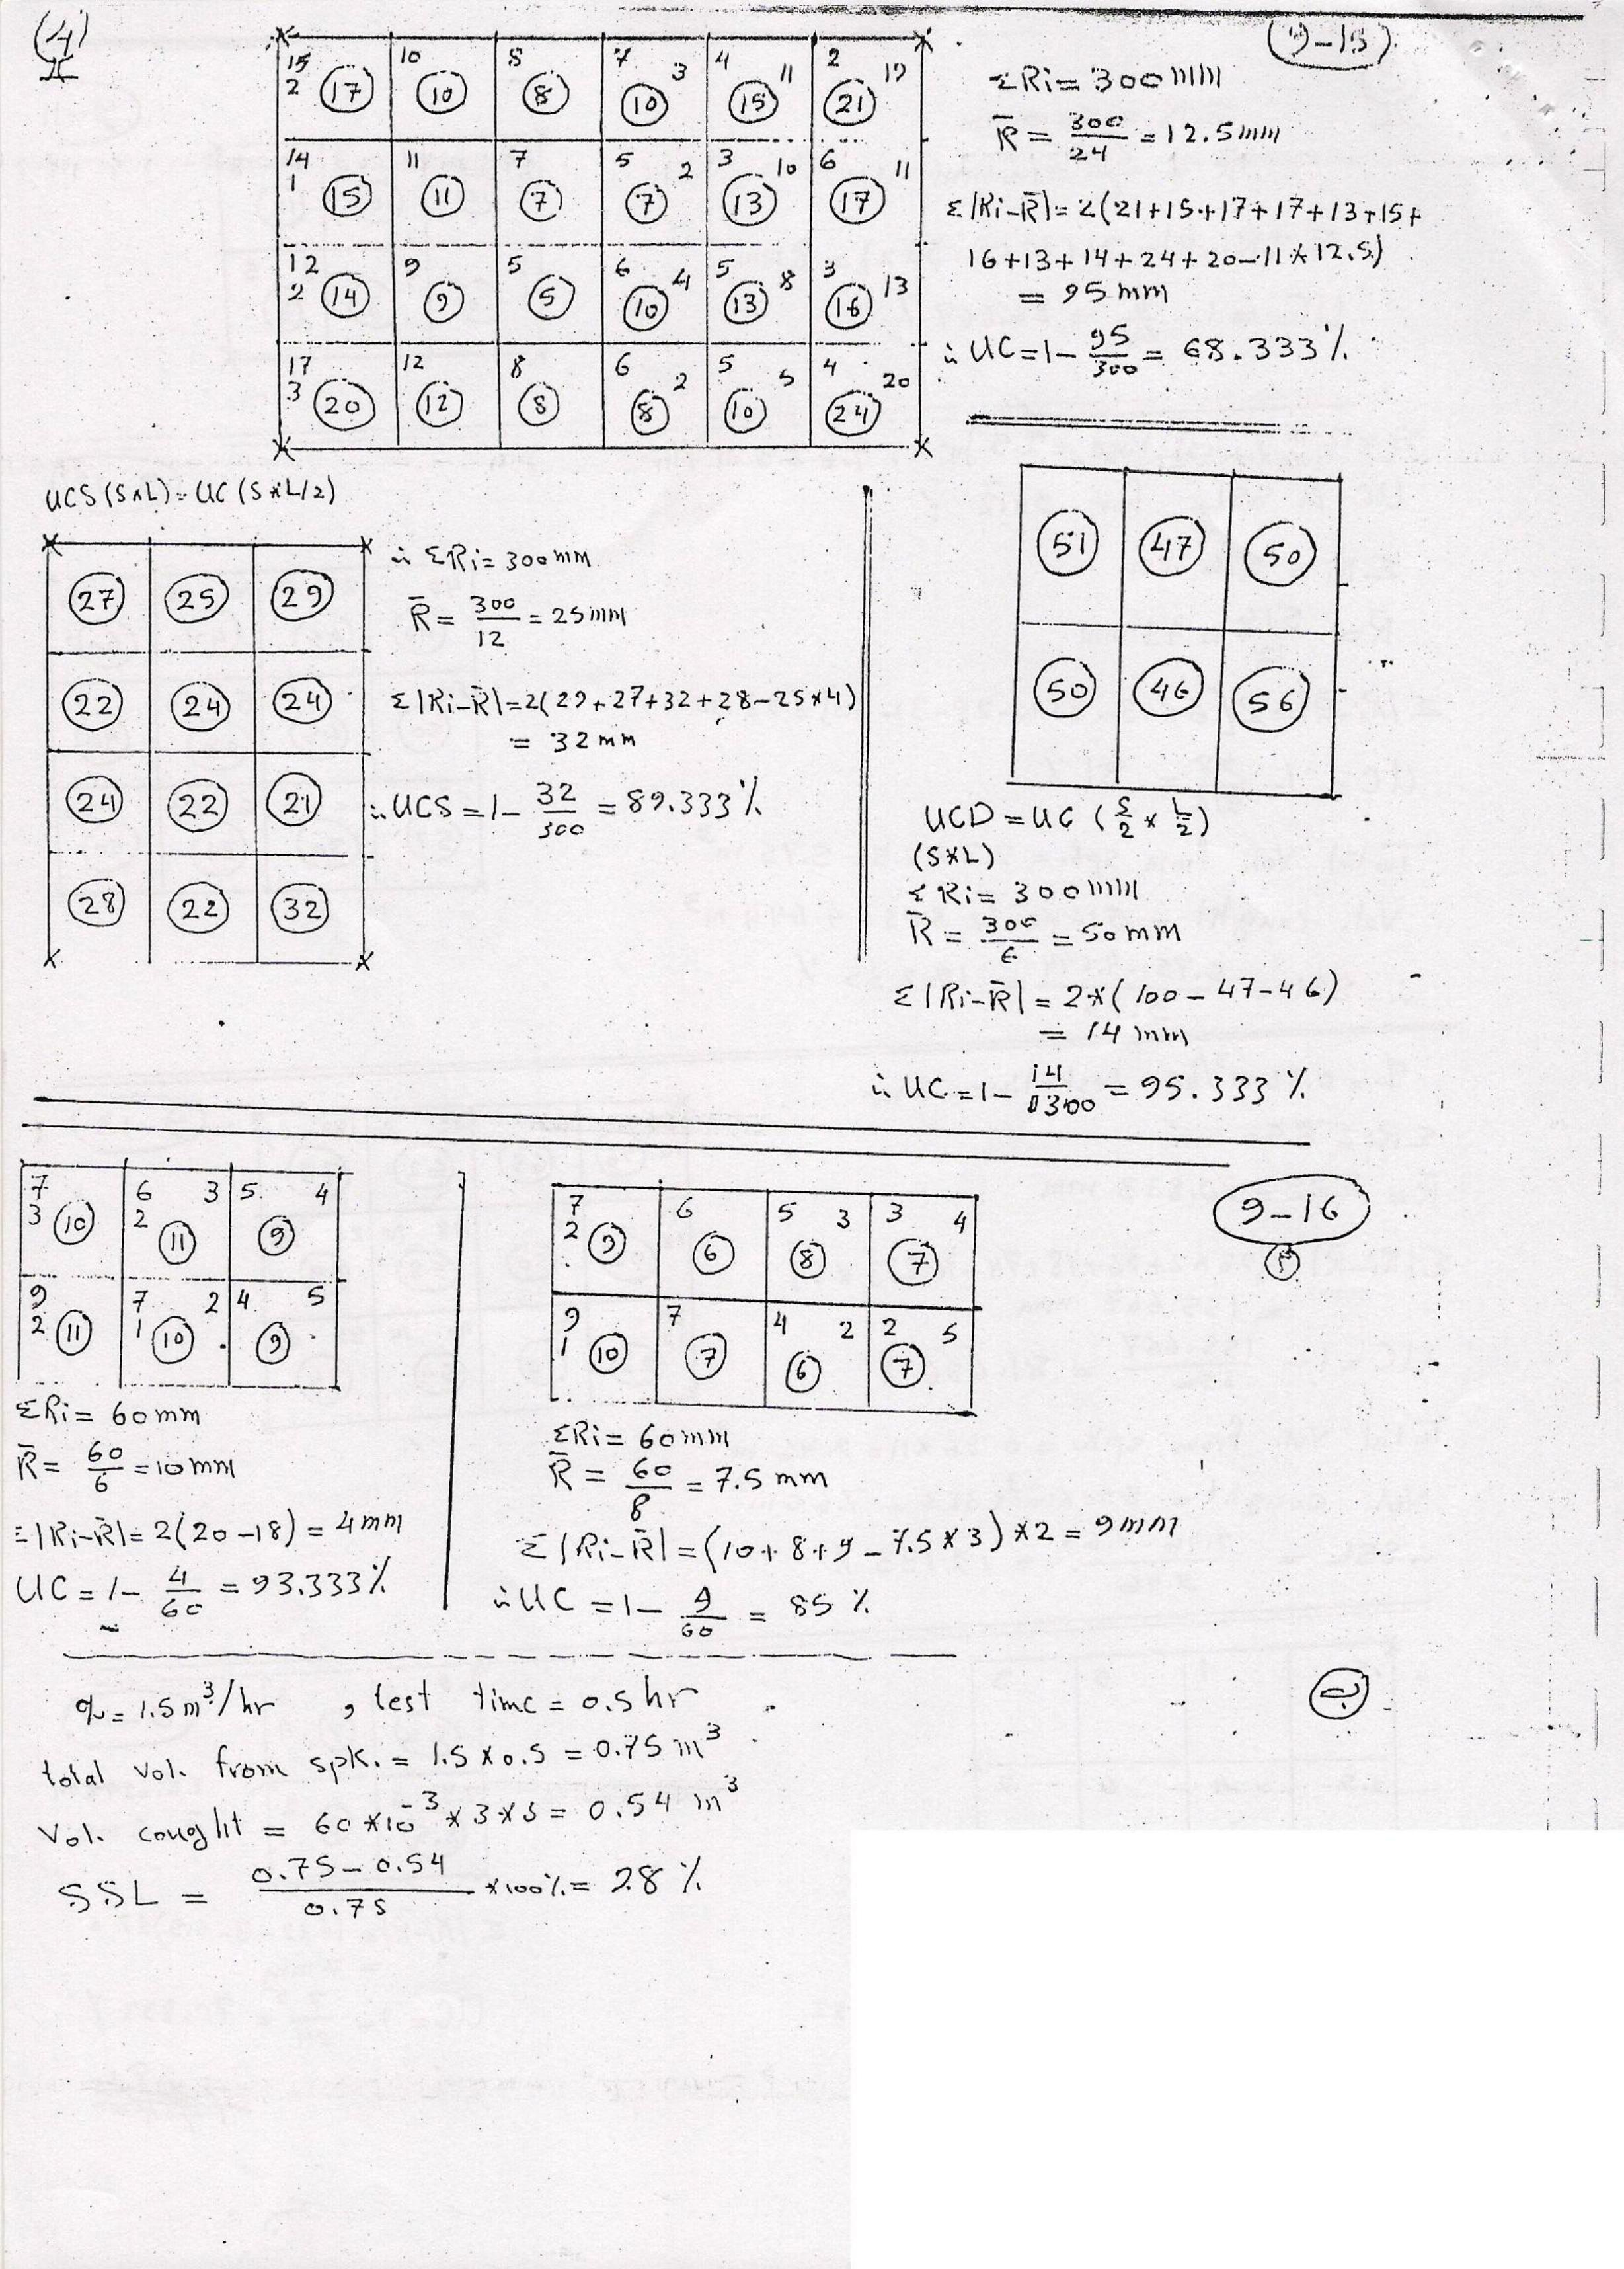 (4)
(9-15)
15 10 8 7 3 4 11 2 19
2 17 10 8 10 15 21
14 11 7 5 2 3 10 6 11
1 15 11 7 7 13 17
12 9 5 6 4 5 8 3 13
2 14 9 5 10 13 16
17 12 8 6 2 5 5 4 20
3 20 12 8 8 10 24
ΣRi = 300 mm
R̄ = 300/24 = 12.5 mm
Σ|Ri-R̄| = 2(21+15+17+17+13+15+
16+13+14+24+20-11*12.5)
= 95 mm
∴ UC = 1- 95/300 = 68.333 %
UCS (S*L) = UC (S*L/2)
27 25 29
22 24 24
24 22 21
28 22 32
∴ ΣRi = 300 mm
R̄ = 300/12 = 25 mm
Σ|Ri-R̄| = 2(29+27+32+28-25*4)
= 32 mm
∴ UCS = 1- 32/300 = 89.333 %
51 47 50
50 46 56
UCD = UC (S/2 * L/2)
(S*L)
ΣRi = 300 mm
R̄ = 300/6 = 50 mm
Σ|Ri-R̄| = 2*(100-47-46)
= 14 mm
∴ UC = 1- 14/300 = 95.333 %
9-16
7 6 3 5 4
3 10 2 11 9
9 7 2 4 5
2 11 1 10 9
ΣRi = 60 mm
R̄ = 60/6 = 10 mm
Σ|Ri-R̄| = 2(20-18) = 4 mm
UC = 1- 4/60 = 93.333 %
7 6 5 3 3 4
2 9 6 8 7
9 7 4 2 2 5
1 10 7 6 7
ΣRi = 60 mm
R̄ = 60/8 = 7.5 mm
Σ|Ri-R̄| = (10+8+9-7.5*3)*2 = 9 mm
∴ UC = 1- 9/60 = 85 %
ب
q = 1.5 m³/hr , test time = 0.5 hr
total vol. from spk. = 1.5 * 0.5 = 0.75 m³
Vol. cought = 60 *10⁻³ *3*3 = 0.54 m³
SSL = 0.75-0.54/0.75 *100% = 28 %